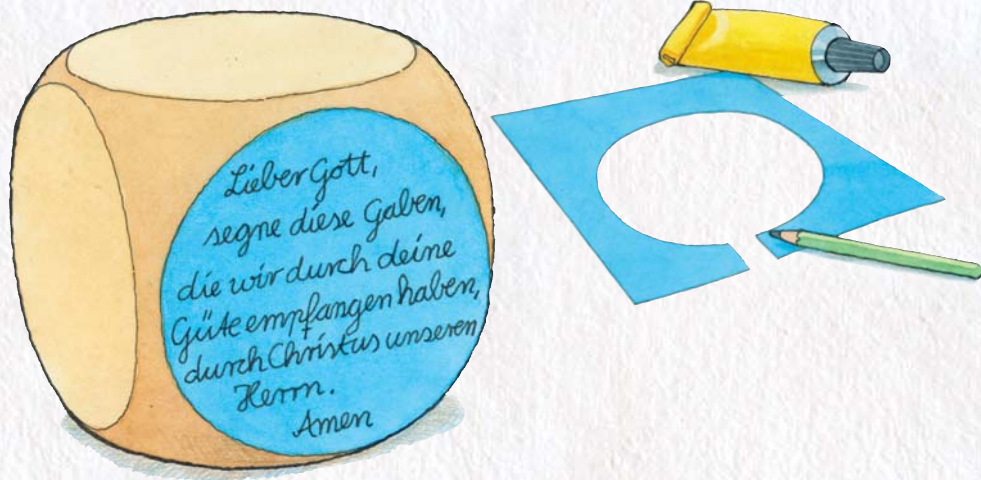 Lieber Gott,
segne diese Gaben,
die wir durch deine
Güte empfangen haben,
durch Christus unseren
Herrn.
Amen